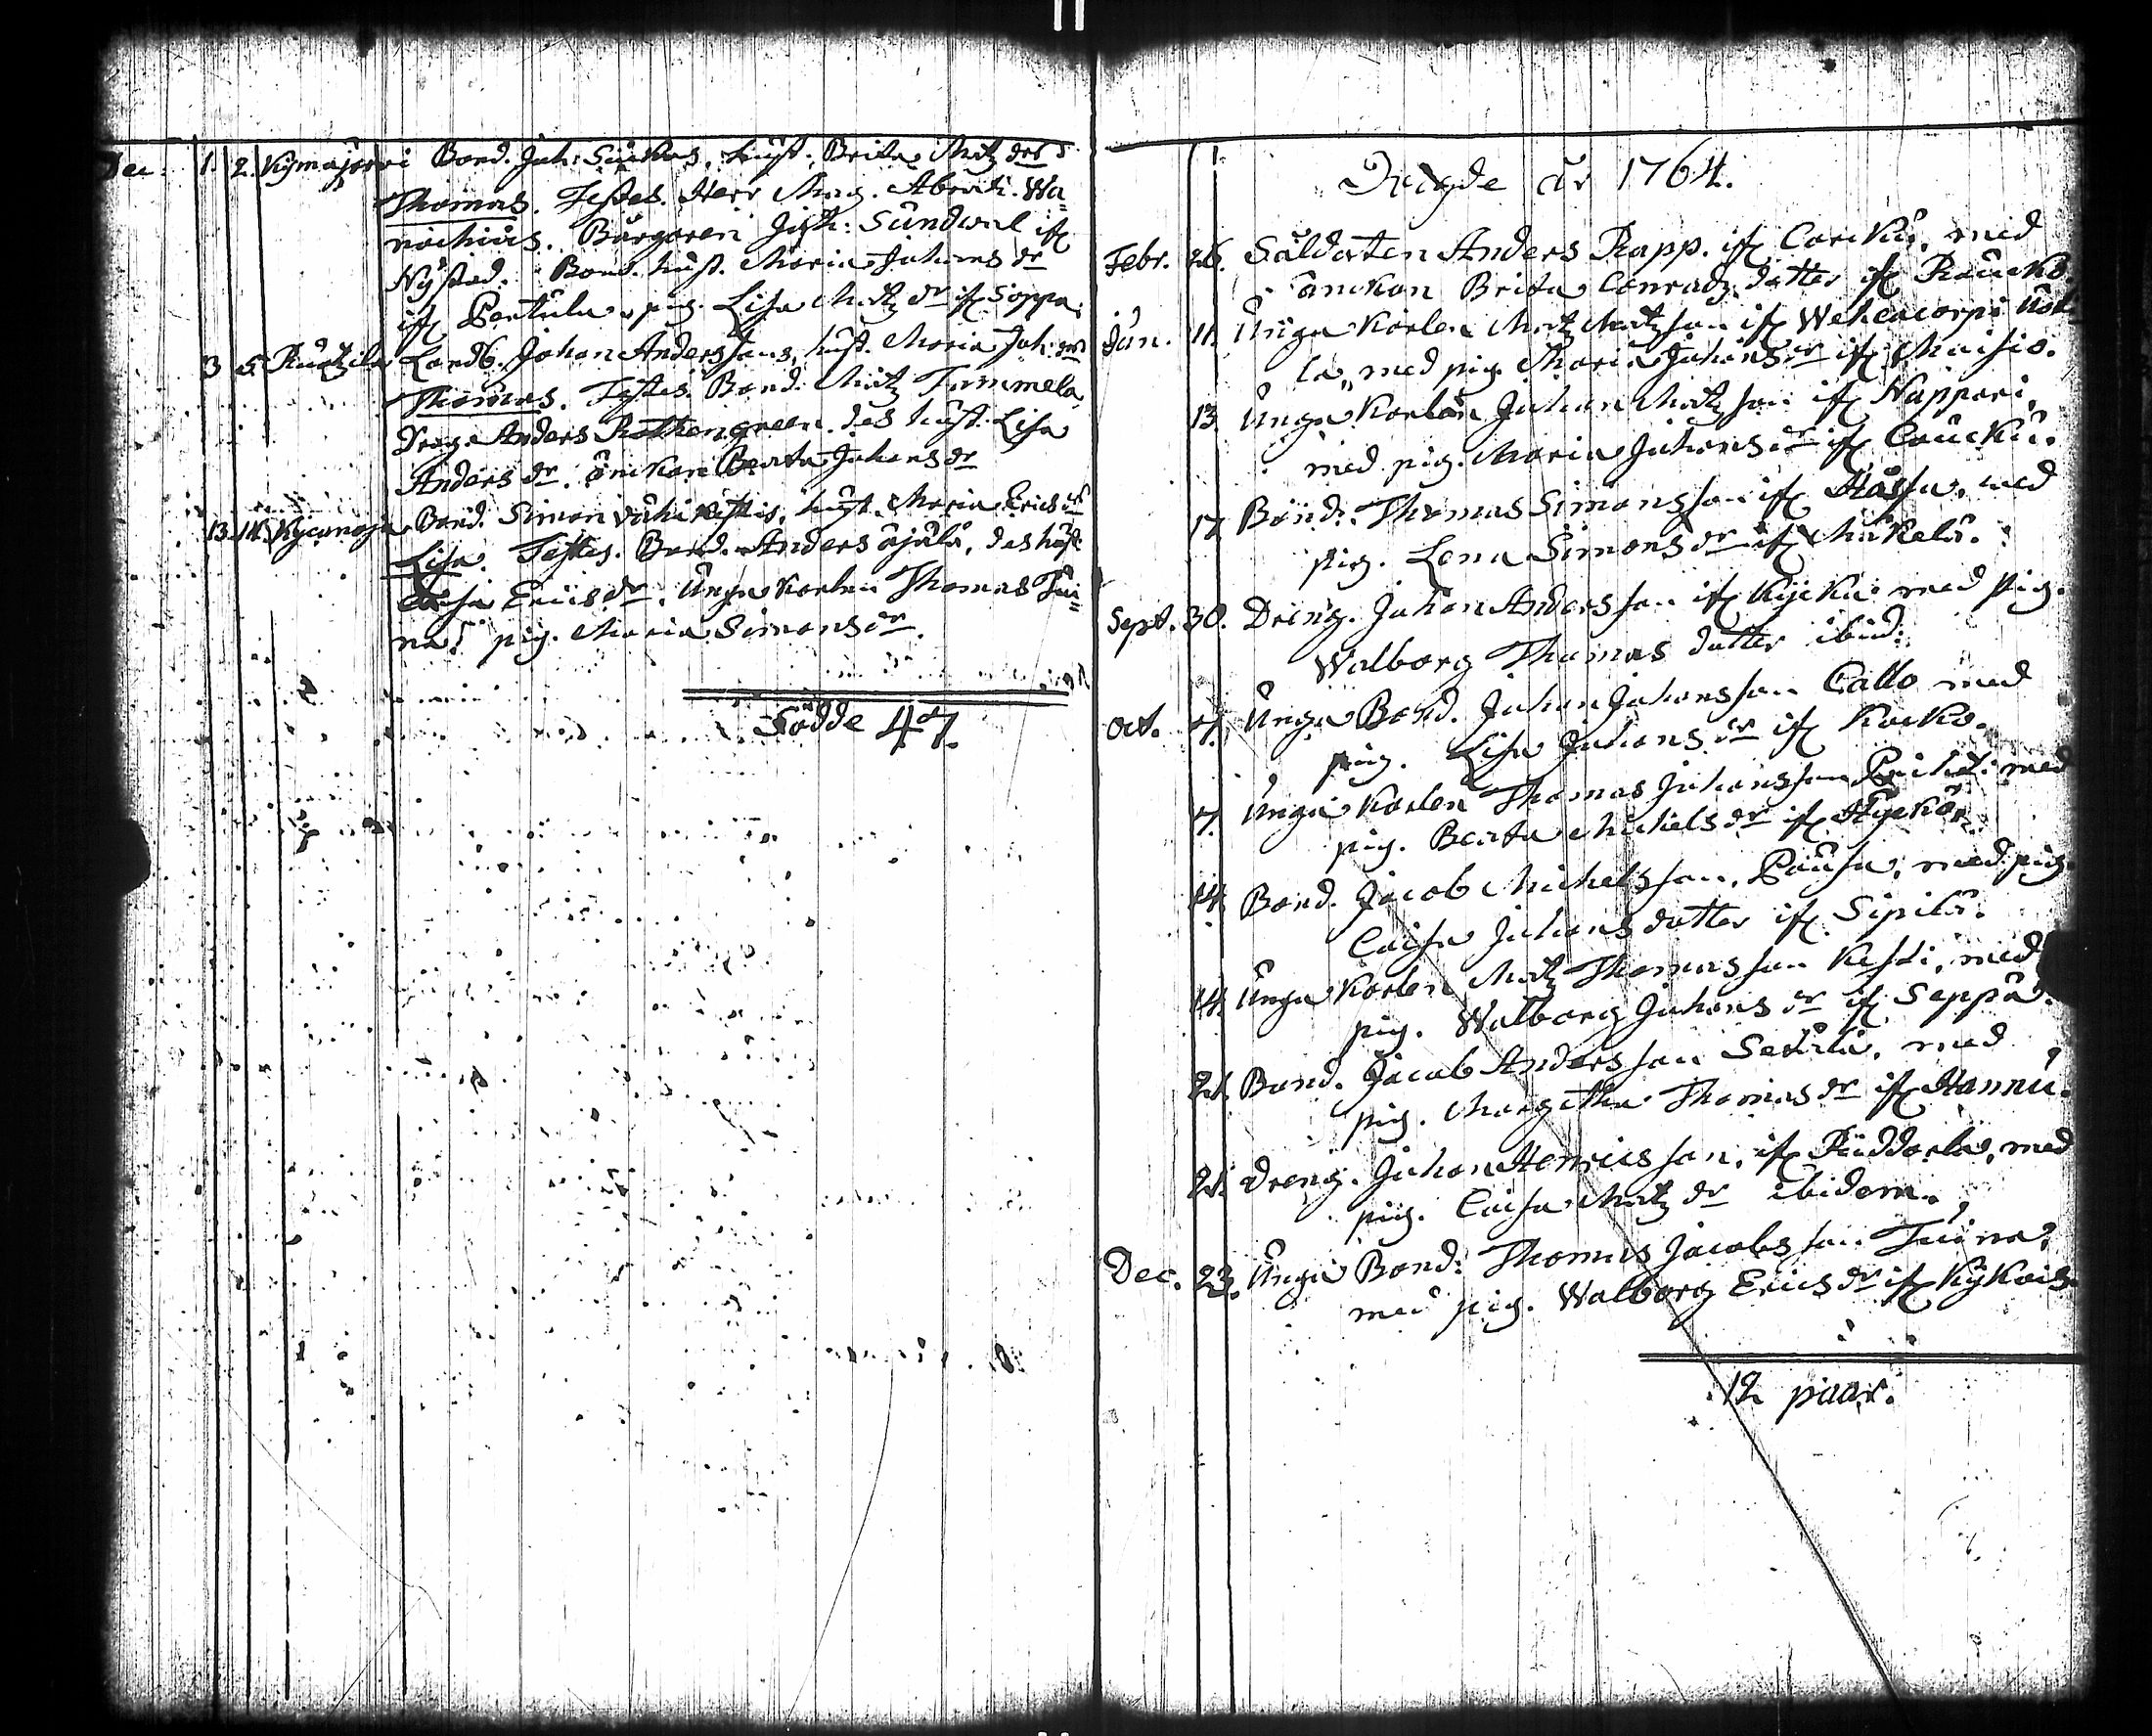 Dec. 1. 2. Kymajervi Bond. Joh: Siukas, hust. Brita Matz drs
Thomas. Testes. Herr Mag. Abrah. Wa=
nochius. Borgaren Joh: Sundwal ifr
Nystad. Bond. hust. Maria Johans dr
ifr Pertula, pig. Lisa Matz dr ifr Soppa.
3 5. Landb. Johan Anderssons, hust. Maria Joh: drs
Thomas. Testes. Bond. Matz Tammela
Dreng Anders Rothengreen. des hust. Lisa
Anders dr. änkan Beata Johans dr
13. 14. Kycanoja Bond. Simon hust. Maria Erics drs
Lisa. Testes. Bond. Anders äjälä, des hust.
Caisa Erics dr. Unga Karlen Thomas Tui=
na. pig. Maria Simons dr.
Födde 47.
Wigde år 1764.
Febr. 26. Soldaten Anders Rapp. ifr Carcku, med
änckan Brita Conradz dotter ifr
Jun. 11. Unga Karlen Matz Matzson ifr
la, med pig. Maria Johans dr ifr Maisio.
13 Unga Karlen Johan Matzson ifr Nappari,
med pig. Maria Johans dr ifr Caucku.
17 Bond. Thomas Simonsson ifr Hassa, med
pig. Lena Simons dr ifr Mickelä.
Sept. 30. Dreng. Johan Andersson ifr Kycku med pig.
Walborg Thomas dotter ibid:
Oct. 7. Unga Bond. Johan Johansson Callo med
pig. Lisa Johans dr ifr Korko.
7. Unga Karlen Thomas Johansson med
pig. Beata Michels dr ifr
14. Bond. Jacob Michelsson, Pausa, med pig.
Caisa Johans dotter ifr Sipilä.
14. Unga Karlen Matz Thomasson Kesti, med
pig. Walborg Johans dr ifr Seppä.
21. Bond. Jacob Andersson med
pig. Margetha Thomas dr ifr Hannu.
21. Dreng. Johan Henricsson, ifr med
pig. Caisa Matz dr ibidem.
Dec. 23. Unga Bond. Thomas Jacobsson Tuina,
med pig. Walborg Erics dr ifr
12 paar.